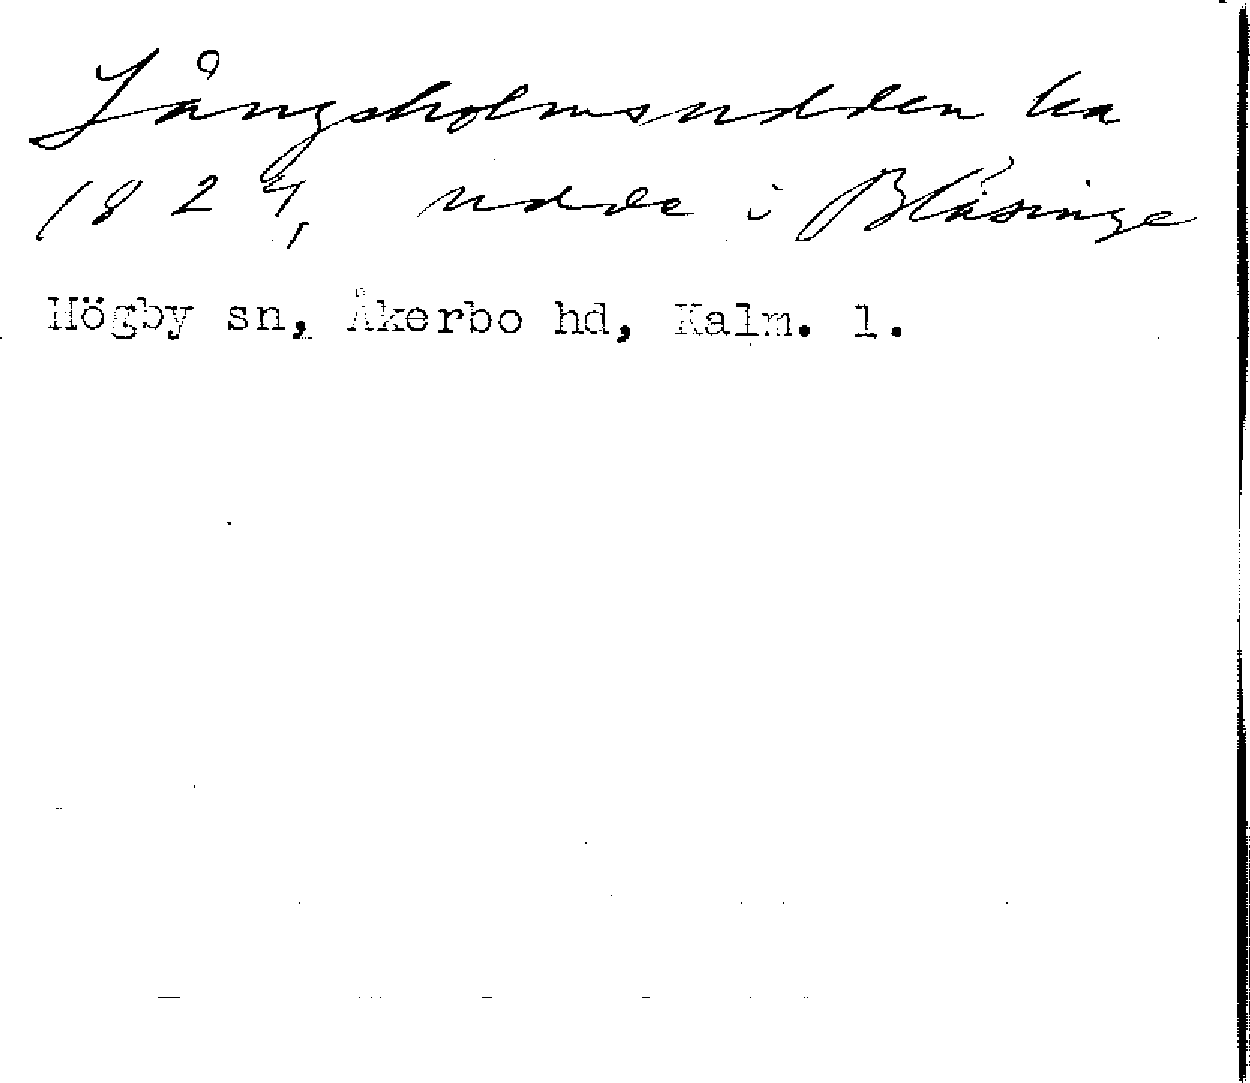 Långsholmsudden ka
1824, udde i Bläsinge
Högby sn, Åkerbo hd, Kalm. l.